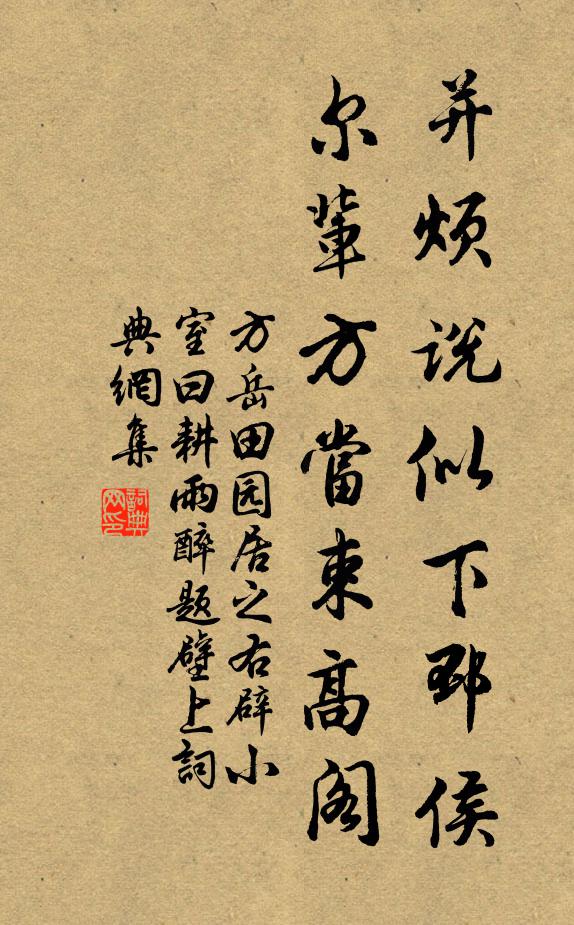 并烦说似下邳侯
尔輩方當束高阁
方岳田园居之右辟小
室曰耕雨醉题壁上詞
典網集
詞典网印